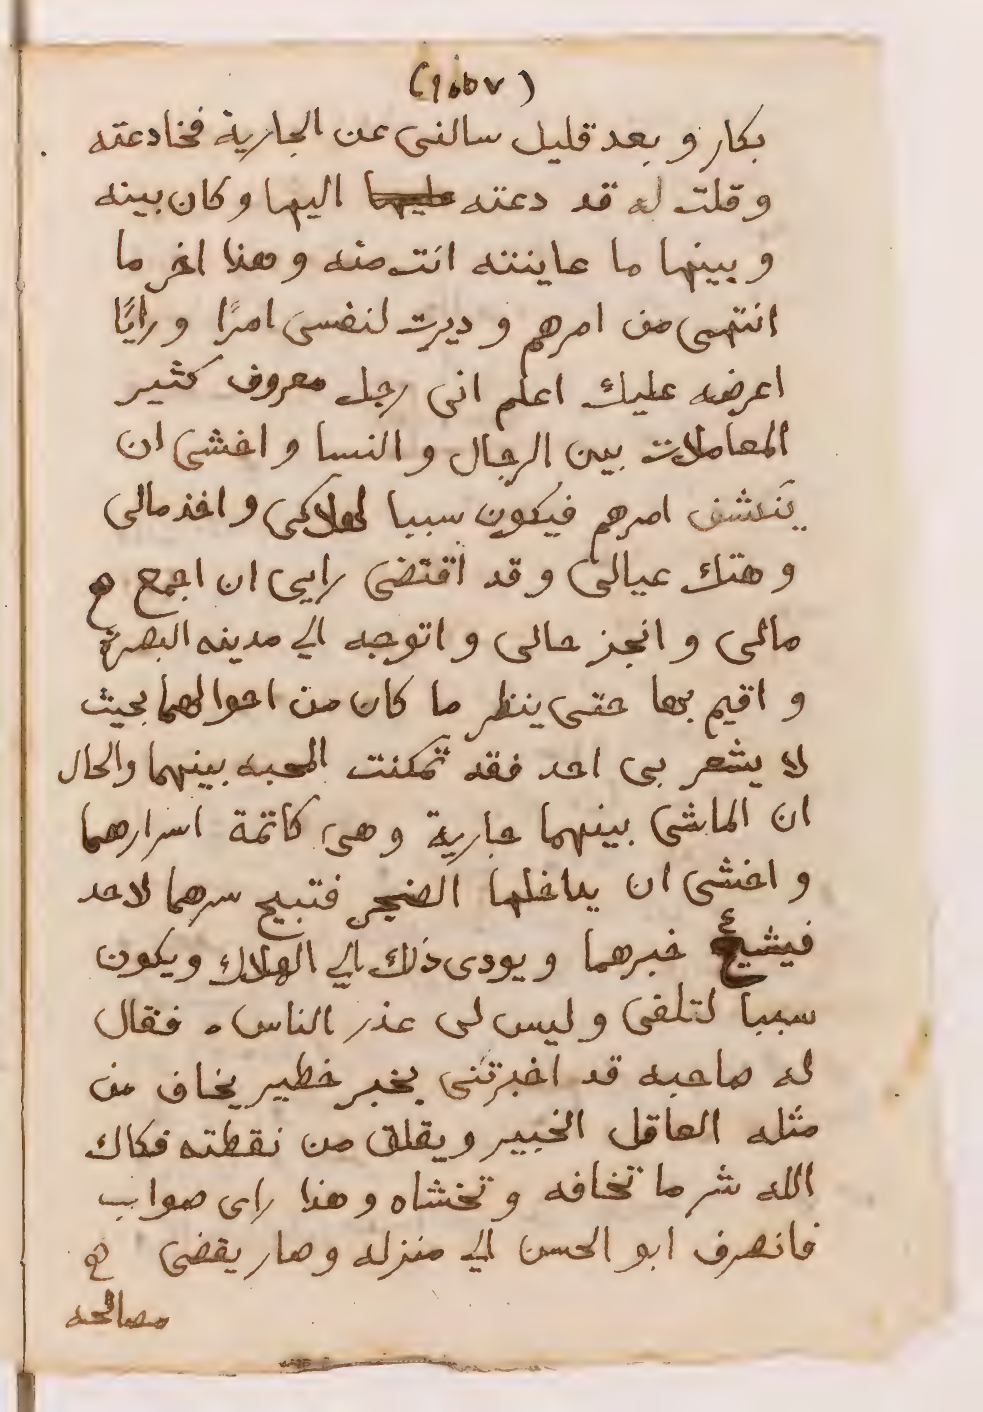 بكار و بعد قليل سالنى عن الجارية فخادعته
و قلت له قد دعته عليها اليها و كان بينه
و بينها ما عاينته انت منه و هذا اخر ما
انتهى من امرهم و ديرت لنفسى امرًا و رايًا
اعرضه عليك اعلم انى رجل معروف كثير
المعاملات بين الرجال و النسا و اخشى ان
ينكشف امرهم فيكون سببا لهلاكى و اخذ مالى
و هتك عيالى و قد اقتضى رايى ان اجمع
مالى و انجز حالى و اتوجه الي مدينه البصرة
و اقيم بها حتى ينظر ما كان من احوالهما بحيث
لا يشعر بى احد فقد تمكنت المحبه بينهما والحال
ان الماشى بينهما جارية و هى كاتمة اسرارهما
و اخشى ان يداخلها الضجر فتبيح سرهما لاحد
فيشيع خبرهما و يودى ذلك الي الهلاك و يكون
سببا لتلفى و ليس لى عذر الناس . فقال
له صاحبه قد اخبرتنى بخبر خطير يخاف من
مثله العاقل الخبير و يقلق من نقطته فكاك
الله شر ما تخافه و تخشاه و هذا راى صواب
فانصرف ابو الحسن الي منزله و صار يقضى
مصالحه